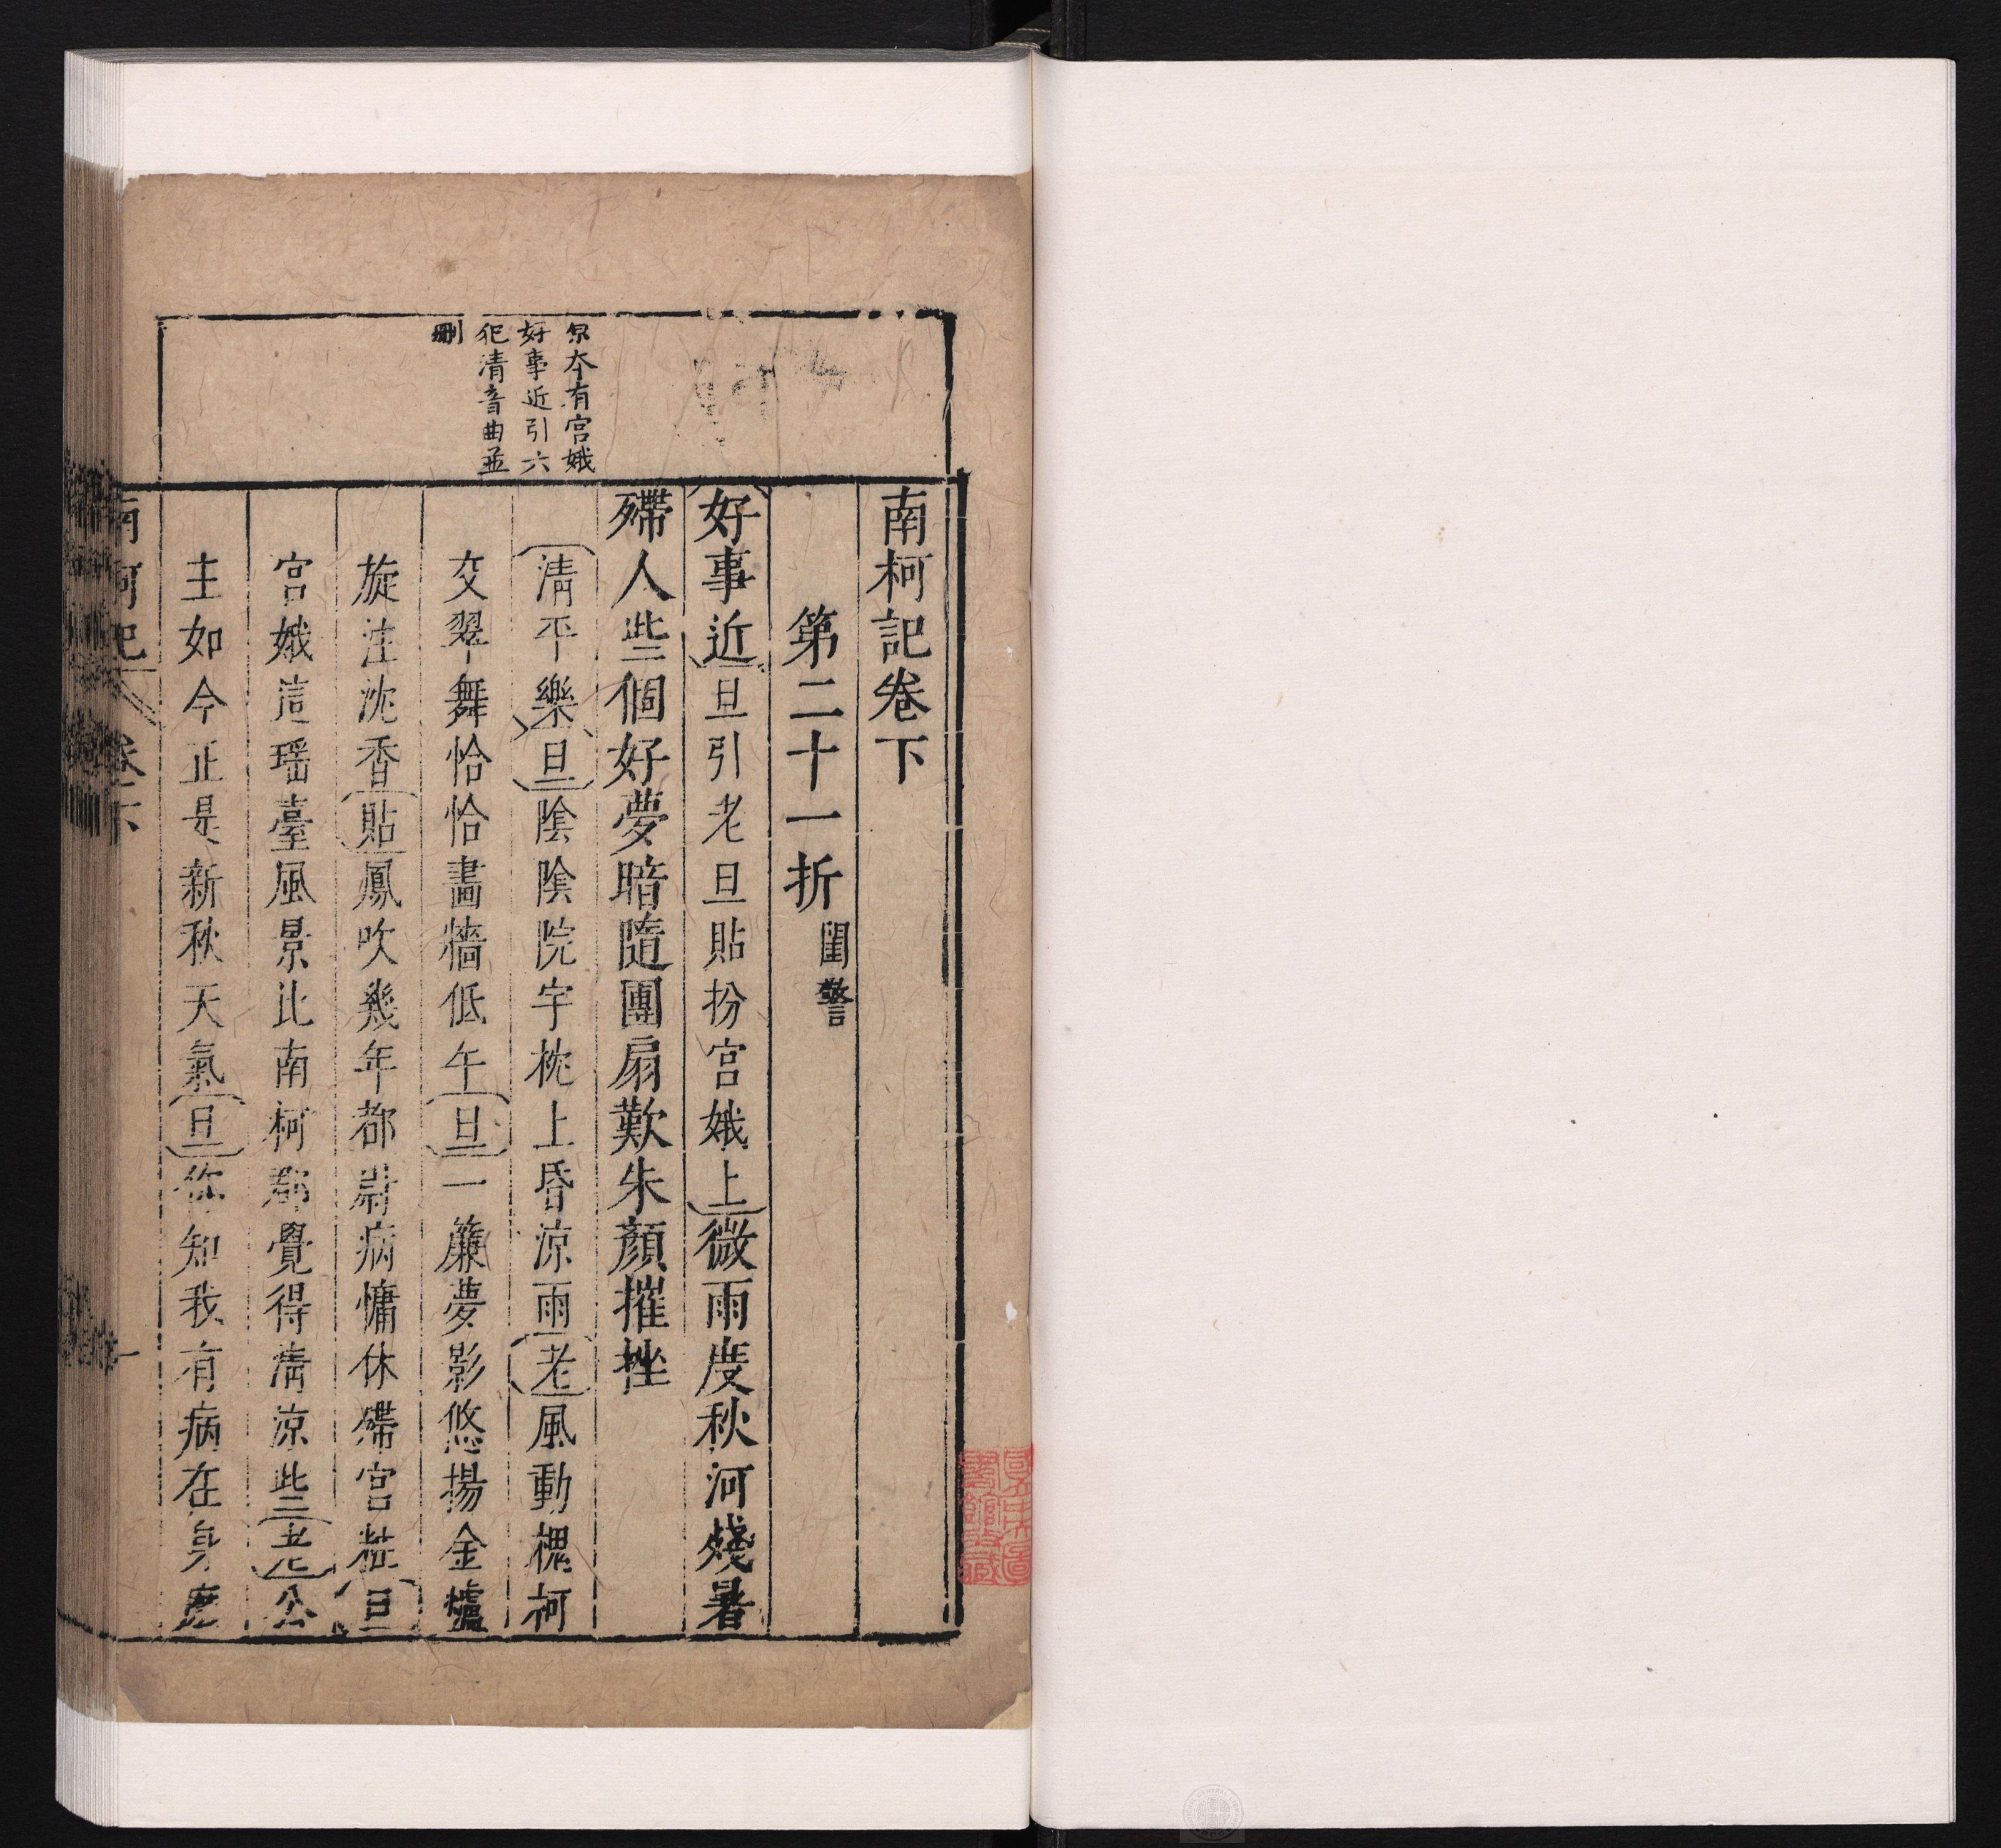 南柯記卷下
第二十一折 閨警
好事近旦引老旦貼扮宮娥上微雨度秋河殘暑
殢人些個好夢暗隨團扇歎朱顏摧挫
清平樂旦陰陰院宇枕上昏涼雨老風動槐柯
交翠舞恰恰畵牆低午旦一簾夢影悠揚金爐
旋注沈香貼鳳吹幾年都尉病慵休殢宮粧旦
宮娥這瑶臺風景比南柯郡覺得清涼些老公
主如今正是新秋天氣旦你知我有病在身
原本有宮娥
好事近引六
犯清音曲並
刪
南柯記
卷下
一
國立中央圖
書館收藏